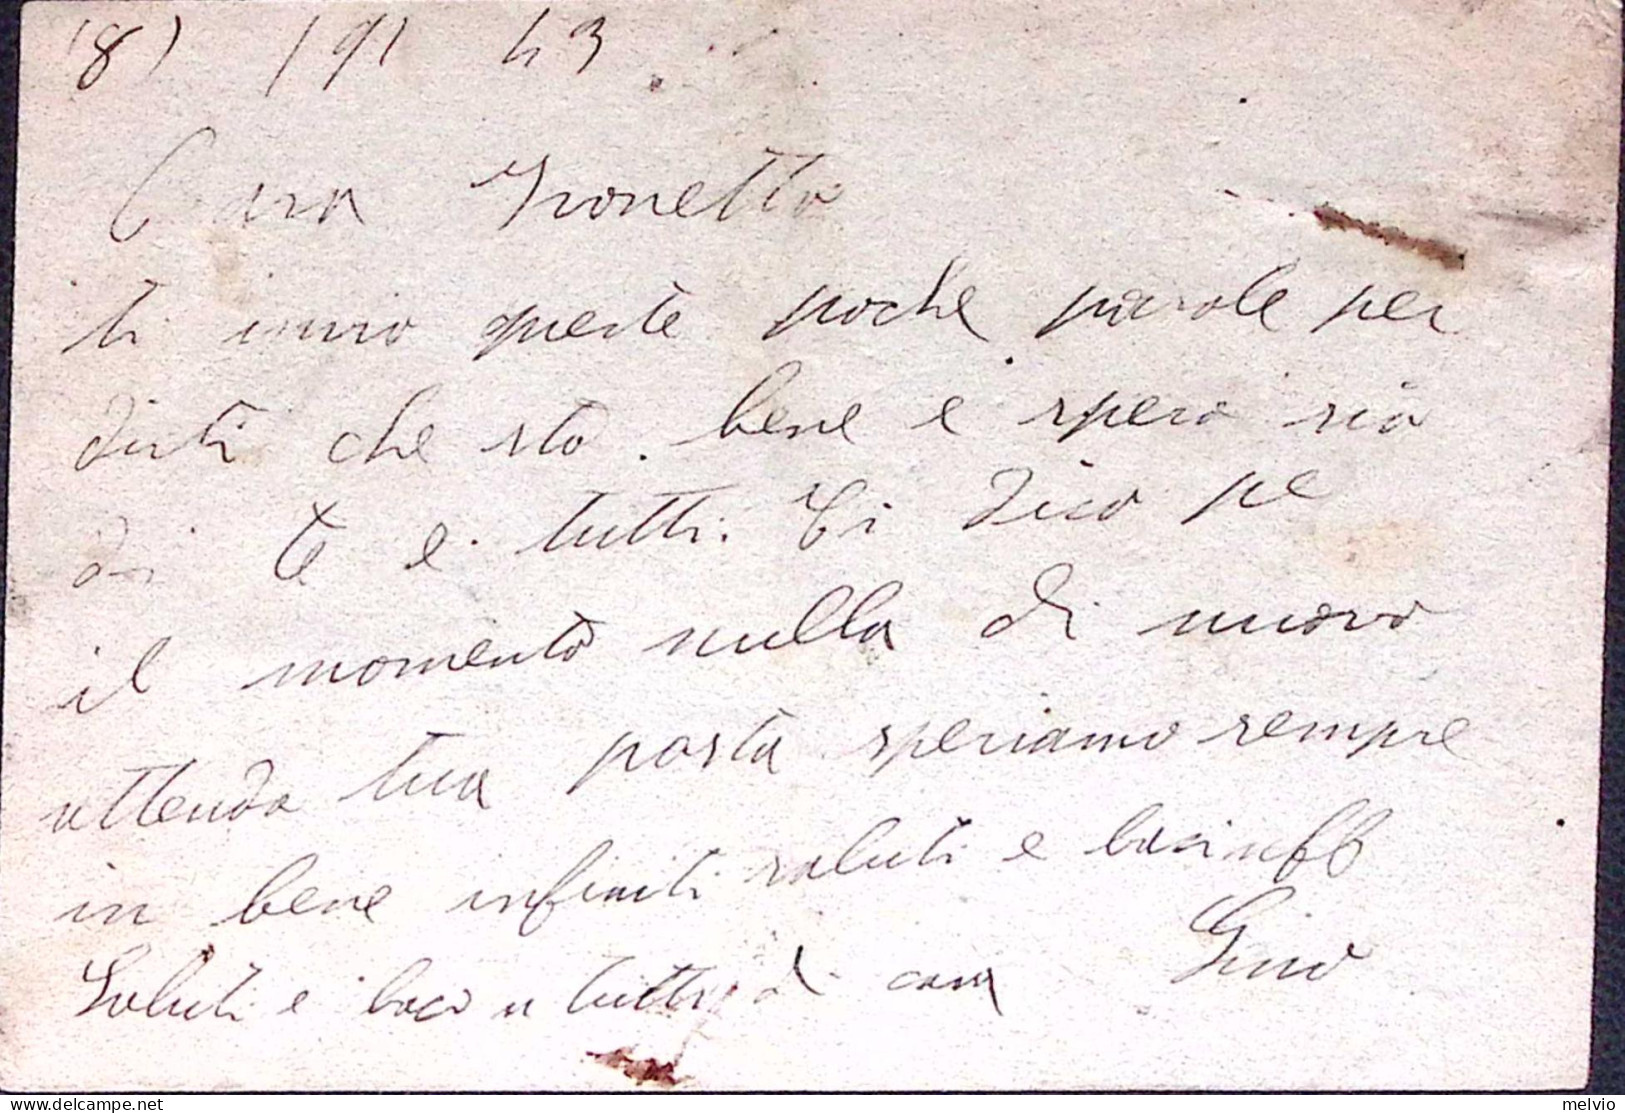 43
Cara
ti invio queste poche parole per
dirti che sto bene e spero sia
di te e tutti. Ti dico pe
il momento nulla di nuovo
attendo tua posta speriamo sempre
in bene infiniti saluti e baci aff
Gino
Saluti e baci a tutti di casa
melvio